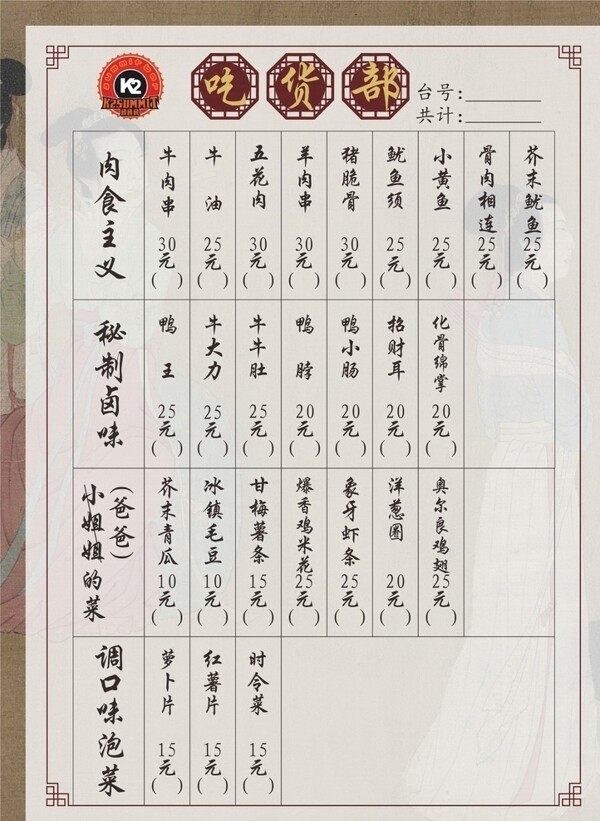 SUMMIT BAR
K2
K2SUMMIT
BAR
吃货部
台号:
共计:
肉食主义
牛肉串 30元( )
牛油 25元( )
五花肉 30元( )
羊肉串 30元( )
猪脆骨 30元( )
鱿鱼须 25元( )
小黄鱼 25元( )
骨肉相连 25元( )
芥末鱿鱼 25元( )
秘制卤味
鸭王 25元( )
牛大力 25元( )
牛牛肚 25元( )
鸭脖 20元( )
鸭小肠 20元( )
招财耳 20元( )
化骨绵掌 20元( )
(爸爸)
小姐姐的菜
芥末青瓜 10元( )
冰镇毛豆 10元( )
甘梅薯条 15元( )
爆香鸡米花 25元( )
象牙虾条 25元( )
洋葱圈 20元( )
奥尔良鸡翅 25元( )
调口味泡菜
萝卜片 15元( )
红薯片 15元( )
时令菜 15元( )